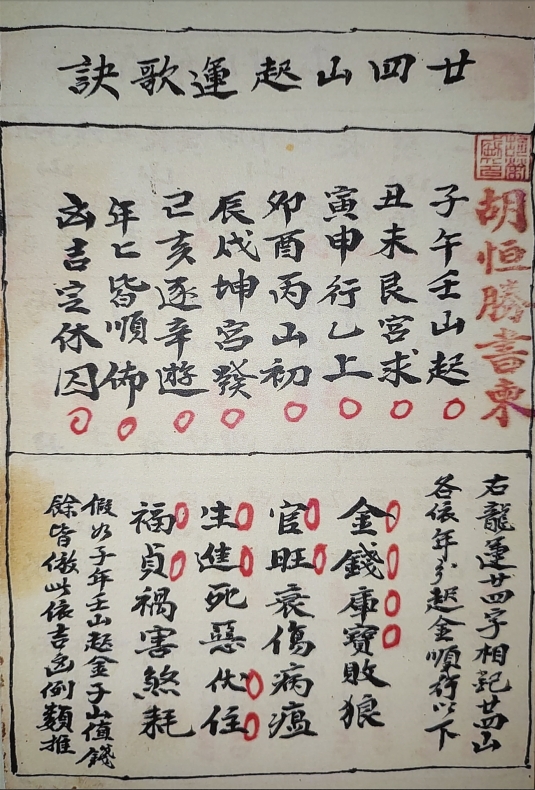 廿四山起運歌訣
胡恒勝書柬
子午壬山起
丑未艮宮求
寅申行乙上
卯酉丙山初
辰戌坤宮發
己亥逐辛遊
年亡皆順佈
凶吉定休囚
右龍運廿四字相記廿四山
各依年分起金順行以下
金錢庫寶敗狼
官旺衰傷病瘟
生進死惡伏住
福貞禍害煞耗
假如子年壬山起金子山值錢
餘皆倣此依吉凶例類推